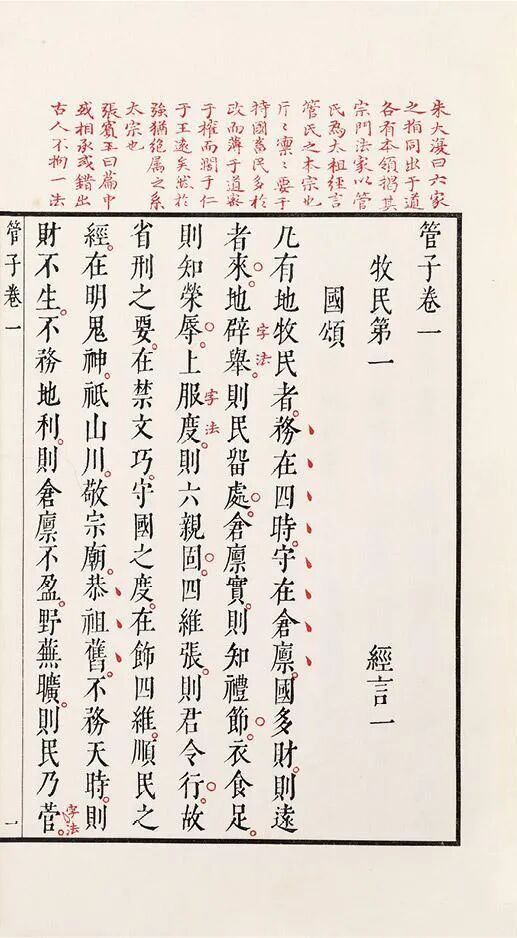 朱大復曰六家
之指同出于道
各有本領揭其
宗門法家以管
氏為太祖經言
管氏之本宗也
斤〻禀〻要于
持國畜民多於
政而薄于道嚴
于權而闊于仁
于王遠矣然於
強猶絕属之系
太宗也
張賓王曰篇中
或相承或錯出
古人不拘一法
管子卷一
牧民第一 經言一
國頌
凢有地牧民者務在四時守在倉廩國多財則遠
者來地辟舉則民畱處倉廩實則知禮節衣食足
字法
則知榮辱上服度則六親固四維張則君令行故
字法
省刑之要在禁文巧守國之度在飾四維順民之
經在明鬼神祇山川敬宗廟恭祖舊不務天時則
財不生不務地利則倉廩不盈野蕪曠則民乃菅
字法
管子卷一 一